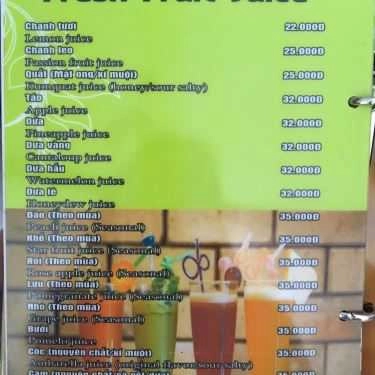 Fresh Fruit Juice
Chanh tươi 22.000Đ
Lemon juice
Chanh leo 25.000Đ
Passion fruit juice
Quất (Mật ong/xí muội) 25.000Đ
Kumquat juice (honey/sour salty)
Táo 32.000Đ
Apple juice
Dứa 32.000Đ
Pineapple juice
Dưa vàng 32.000Đ
Cantaloup juice
Dưa hấu 32.000Đ
Watermelon juice
Dưa lê 32.000Đ
Honeydew juice
Đào (Theo mùa) 35.000Đ
Peach juice (Seasonal)
Khế (Theo mùa) 35.000Đ
Star fruit juice (Seasonal)
Roi (Theo mùa) 35.000Đ
Rose apple juice (Seasonal)
Lựu (Theo mùa) 35.000Đ
Pomegranate juice (Seasonal)
Nho (Theo mùa) 35.000Đ
Grape juice (Seasonal)
Bưởi 35.000Đ
Pomelo juice
Cóc (nguyên chất/xí muội) 35.000Đ
Ambarella juice (original flavor/sour salty)
35.000Đ